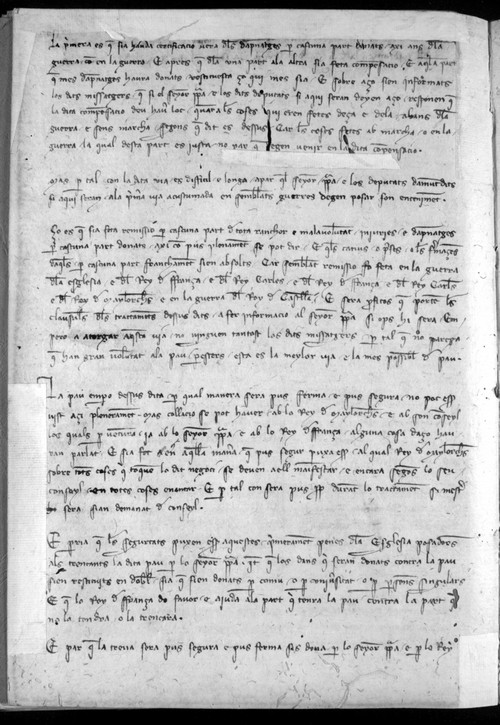 La p'mera es q' sia hauda certificacio v'era dels dapnatges p' cascuna part donats axi ans dela
guerra co en la guerra. E apres q' dela una part ala altra sia feta compensacio. E aq̃lla part
q' mes dapnatges haura donats restituesca ço qui mes sia. E sobre aço sien informats
los dits missatgers q' si el senyor ppa e los dits deputats si aqui seran dehien açi respondre q'
la dita compensacio deu hauer loc quant ales coses qui eren fetes deça e dela abans dela
guerra e sens marcha segons q' dit es dessus. Car les coses fetes ab marcha o en la
guerra la qual desta part es iusta no par q' degen venir en la dita compensacio.
Mas p' tal con la dita via es dificil e longa apar q'l senyor ppa e los deputats damuntdits
si aqui seran ala p'mera via acustumada en semblants guerres degen posar son enteniment.
Ço es q' sia feta remissio p' cascuna part de tota rancor e malauolentat iniuries e dapnatges
p' cascuna part donats axi co pus plenament se pot dir. E q'ls catius o p'ses e les fermances
daq̃lls p' cascuna part francament sien absolts. Car semblant remissio fo feta en la guerra
dla esglesia e del Rey de França e del Rey Carles e del Rey de França e del Rey Carles
e del Rey de Maylorches e en la guerra del Rey de Castella. E sera profitos q' porten les
clausules dels tractaments dessus dits a fer informacio al senyor ppa si ops hi sera. Em
pero a atorgar aquesta via no uinguen tantost los dits missatgers p' tal q' no paregra
q' han gran uolentat ala pau. Pero esta es la meylor via e la mes possibl' de pau.
La pau empo dessus dita p' qual manera sera pus ferma e pus segura no pot esser
vist açi plenerament. Mas collacio se pot hauer ab lo Rey de Maylorches e ab son conseyl
los quals p' uentura ia ab lo senyor ppa e ab lo Rey de França alguna cosa daço hau
ran parlat. E sia fet en aq̃lla manera q' pus segur puxa esser al qual Rey de Maylorches
sobre totes coses q' toquen lo dit negoci se deuen aell manifestar e encara segons lo seu
conseyl en totes coses enantar. E p' tal con sera pus esser durant lo tractament si mester
hi sera sian demanat de conseyl.
E paria q' les seguretats puxen esser aquestes. Primerament penes dela Esglesia posadores
als trencants la dita pau p' lo senyor ppa. Jtem q' los dans q' seran donats contra la pau
sien restituits en doble sia q' sien donats p' comu o p' comunitat o p' p'sones singulars
E q' lo Rey de França do fauor e aiuda ala part q' tenra la pau contra la part q'
no la tendra o la trencara.
E par q' la treua sera pus segura e pus ferma sis dona p' lo senyor ppa e p' lo Rey